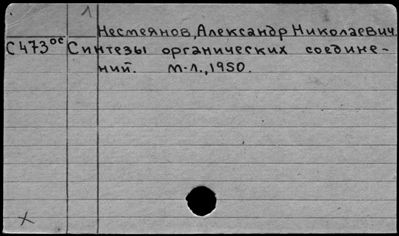 1
Несмеянов, Александр Николаевич
С473ос Синтезы органических соедине-
ний. М-Л., 1950.
×